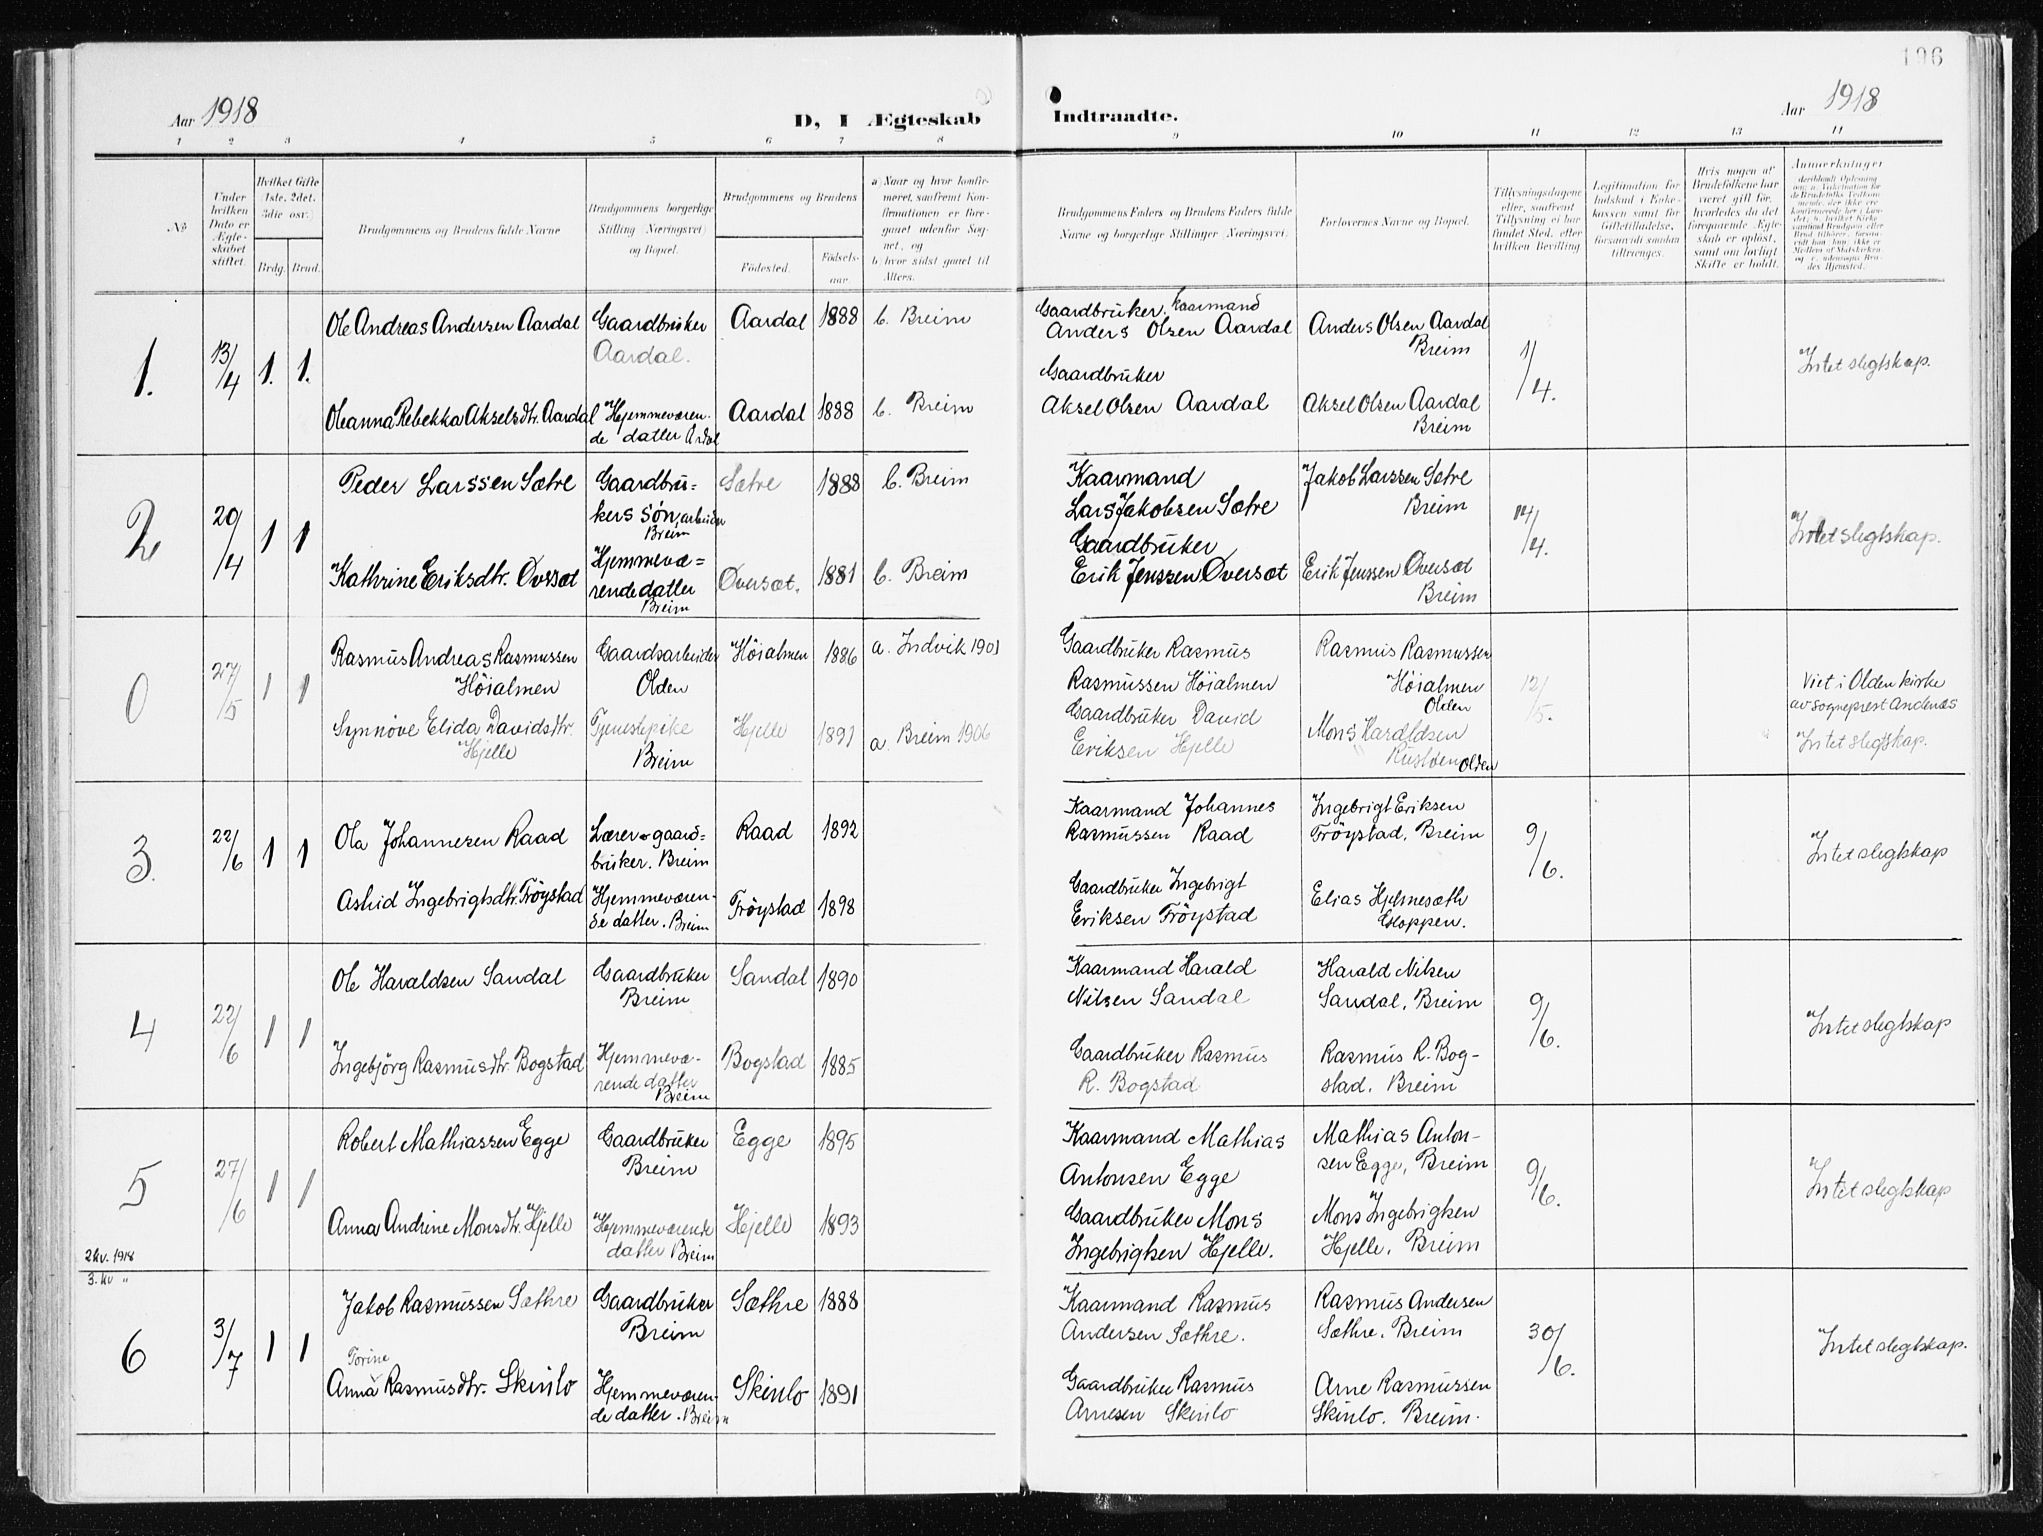 196
Aar 1918
D, I Ægteskab
Indtraadte.
Aar 1918
1 2 3 4 5 6 7 8 9 10 11 12 13 14
No
Under hvilken Dato er Ægteskabet stiftet.
Hvilket Gifte (1ste, 2det, 3die osv.)
Brdg. Brud.
Brudgommens og Brudens fulde Navne
Brudgommens borgerlige Stilling (Næringsvei) og Bopæl.
Brudgommens og Brudens
Födested.
Födsels-aar.
a) Naar og hvor konfirmeret, saafremt Konfirmationen er foregaaet udenfor Sognet, og
b) hvor sidst gaaet til Alters.
Brudgommens Faders og Brudens Faders fulde Navne og borgerlige Stillinger (Næringsvei).
Forlovernes Navne og Bopæl.
Tillysningsdagene eller, saafremt Tillysning ei har fundet Sted, efter hvilken Bevilling
Legitimation for Indskud i Enkekassen samt for Giftetilladelse, forsaavidt saadan tiltrænges.
Hvis nogen af Brudefolkene har været gift før, hvorledes da det foregaaende Ægteskab er opløst, samt om lovligt Skifte er holdt.
Anmærkninger
1.
13/4
1. 1.
Ole Andreas Andersen Aardal
Gaardbruker
Aardal.
Aardal
1888
b. Breim
Gaardbruker. Kaarmand
Anders Olsen Aardal
Anders Olsen Aardal
Breim
1/4.
Intet slegtskap.
Oleanna Rebekka Akselsdtr. Aardal
Hjemmeværen-
de datter Ardal
Aardal
1888
b. Breim
Gaardbruker
Aksel Olsen Aardal
Aksel Olsen Aardal
Breim
2
20/4
1 1
Peder Larssen Sætre
Gaardbru-
kers søn, arbeider
Breim
Sætre
1888
b. Breim
Kaarmand
Lars Jakobsen Sætre
Jakob Larssen Sætre
Breim
14/4.
Intet slegtskap.
Kathrine Eriksdtr. Øvsæt
Hjemmevæ-
rende datter
Breim
Øversæt.
1881
b. Breim
Gaardbruker
Erik Jenssen Øversæt
Erik Jenssen Øversæt
Breim
0
27/5
1 1
Rasmus Andreas Rasmussen
Höialmen
Gaardsarbeider
Olden
Höialmen
1886
a. Indvik 1901
Gaardbruker Rasmus
Rasmussen Höialmen
Rasmus Rasmussen
Höialmen
Olden
12/5.
Viet i Olden kirke
av sogneprest Andenæs
Intet slegtskap.
Synnöve Elida Davidsdtr.
Hjelle
Tjenestepike
Breim
Hjelle
1891
a. Breim 1906
Gaardbruker David
Eriksen Hjelle
Mons Hardldsen
Olden
3.
22/6
1 1
Ola Johannesen Raad
Lærer og gaard-
bruker. Breim
Raad
1892
Kaarmand Johannes
Rasmussen Raad
Ingebrigt Eriksen
Fröystad. Breim
9/6.
Intet slegtskap
Astrid Ingebrigtsdtr. Fröystad
Hjemmeværen-
de datter. Breim
Fröystad
1898
Gaardbruker Ingebrigt
Eriksen Fröystad
Elias Hjelmesæth
Gloppen.
4
22/6
1 1
Ole Haraldsen Sandal
Gaardbruker
Breim
Sandal
1890
Kaarmand Harald
Nilsen Sandal
Harald Nilsen
Sandal, Breim
9/6.
Intet slegtskap
Ingebjörg Rasmusdtr. Bogstad
Hjemmevæ-
rende datter
Breim
Bogstad
1885
Gaardbruker Rasmus
R. Bogstad
Rasmus R. Bog-
stad. Breim
5
27/6
1 1
Robert Mathiassen Egge
Gaardbruker
Breim
Egge
1895
Kaarmand Mathias
Antonsen Egge
Mathias Anton-
sen Egge, Breim
9/6.
Intet slegtskap
Anna Andrine Monsdtr. Hjelle
Hjemmeværende
datter Breim
Hjelle
1893
Gaardbruker Mons
Ingebrigtsen Hjelle.
Mons Ingebrigtsen
Hjelle. Breim
2 kv. 1918
3. kv "
6
3/7
1 1
Jakob Rasmussen Sæthre
Gaardbruker
Breim
Sæthre
1888
Kaarmand Rasmus
Andersen Sæthre.
Rasmus Andersen
Sæthre. Breim
30/6.
Intet slegtskap.
Torine
Anna Rasmusdtr. Skinlo
Hjemmeværen-
de datter. Breim
Skinlo
1891
Gaardbruker Rasmus
Arnesen Skinlo
Arne Rasmussen
Skinlo. Breim.